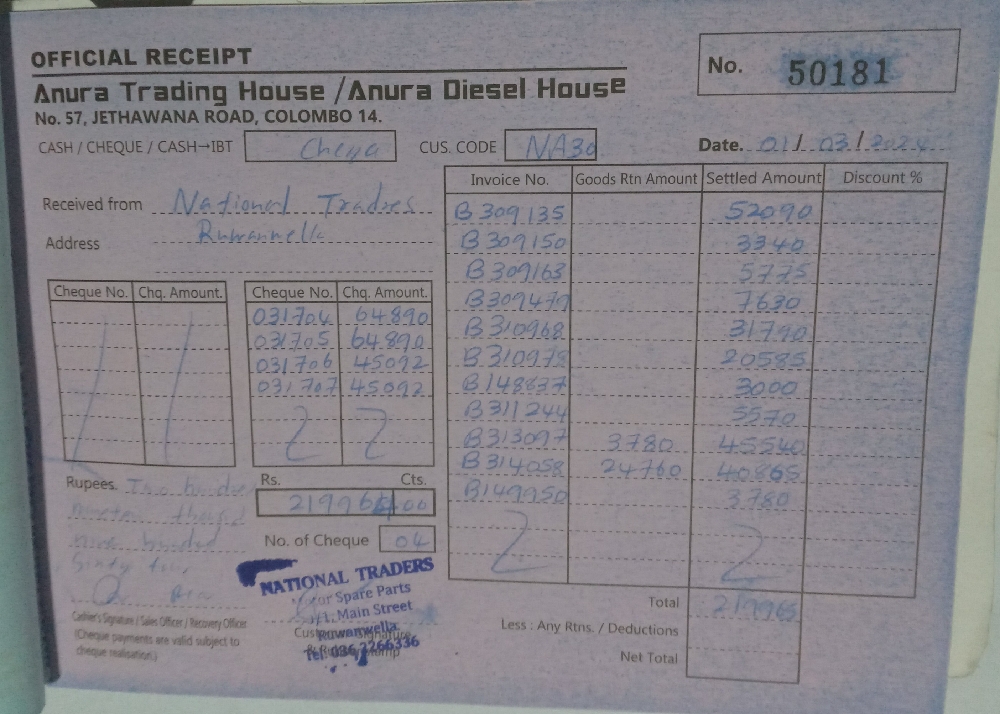 OFFICIAL RECEIPT
No. 50181
Anura Trading House / Anura Diesel House
No. 57, JETHAWANA ROAD, COLOMBO 14.
CASH / CHEQUE / CASH→IBT
CUS. CODE NA30
Date. 01/03/2024
Received from National Tradres
Address Ruwanwella
Cheque No. Chq. Amount. Cheque No. Chq. Amount.
031704 64890
031705 64890
031706 45092
031707 45092
Rupees. Two hundred
nineten
nine hundred
Sixty
Rs. Cts.
219964 00
No. of Cheque 04
Invoice No. Goods Rtn Amount Settled Amount Discount %
B309135 52090
B309150 3340
B309163 5775
B309479 7630
B310968 31790
B310978 20585
B148837 3000
B311244 5570
B313097 3780 45540
B314058 24760 40865
B149950 3780
Total 219965
Less : Any Rtns. / Deductions
Net Total
NATIONAL TRADERS
Spare Parts
Main Street
Ruwanwella.
Tel: 036 2266336
Cashier's Signature / Sales Officer / Recovery Officer
(Cheque payments are valid subject to
cheque realisation.)
Customer Signature